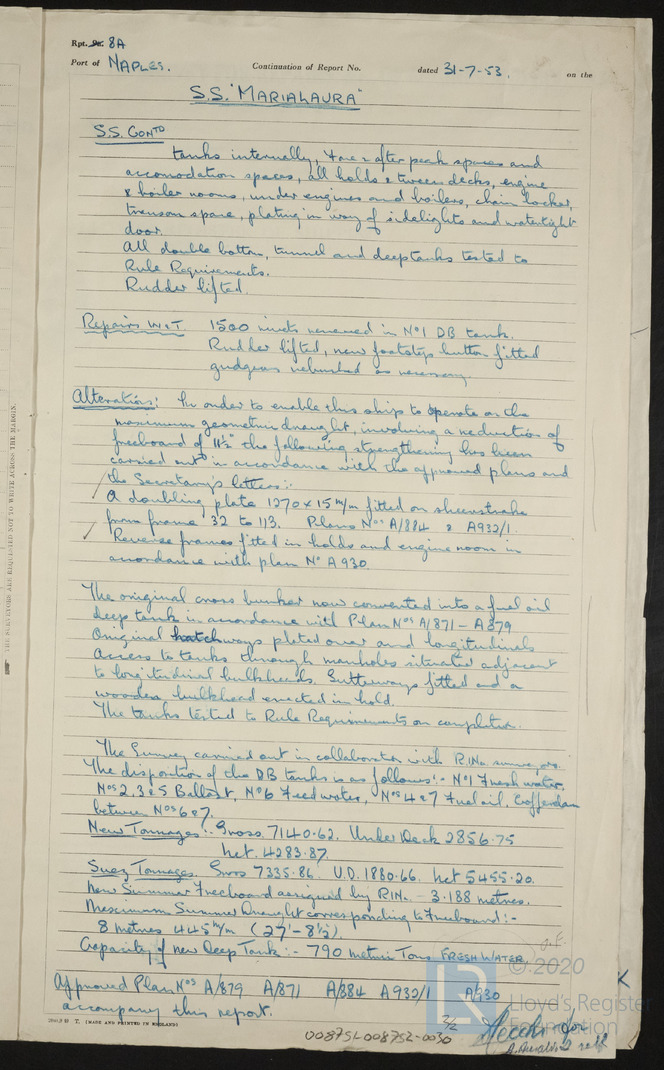 Rpt. 9a. 8A
Port of NAPLES. Continuation of Report No. dated 31-7-53. on the
S.S. "MARIALAURA"
S.S. Contd
tanks internally, fore & after peak spaces and
accomodation spaces, all holds & tween decks, engine
& boiler rooms, under engines and boilers, chain locker,
transom space, plating in way of sidelights and watertight
door.
All double bottom, tunnel and deeptanks tested to
Rule Requirements.
Rudder lifted.
Repairs W&T. 1500 rivets renewed in No 1 DB tank.
Rudder lifted, new footstep button fitted
gudgeons rebushed as necessary.
Alterations: In order to enable this ship to operate on the
maximum geometric draught, involving a reduction of
freeboard of 11½" the following strengthening has been
carried out in accordance with the approved plans and
the Secretary's letters:-
A doubling plate 1270 x 15 m/m fitted on sheerstrake
from frame 32 to 113. Plans Nos A/884 & A932/1.
Reverse frames fitted in holds and engine room in
accordance with plan No A930.
The original cross bunker now converted into a fuel oil
deep tank in accordance with Plan Nos A/871 - A879
Original hatchways plated over and longitudinals
Access to tanks through manholes situated adjacent
to longitudinal bulkheads. Gutterways fitted and a
wooden bulkhead erected in hold.
The tanks tested to Rule Requirements on completion.
The Survey carried out in collaboration with R.I.Na. surveyors.
The disposition of the DB tanks is as follows:- No 1 Fresh water,
Nos 2, 3 & 5 Ballast, No 6 Feed water, Nos 4 & 7 Fuel oil, Cofferdam
between Nos 6 & 7.
New Tonnages:- Gross 7140.62. Under Deck 2856.75
Net. 4283.87.
Suez Tonnages. Gross 7335.86. U.D. 1880.66. Net 5455.20.
New Summer Freeboard assigned by R.I.Na. - 3.188 metres.
Maximum Summer Draught corresponding to Freeboard:-
8 metres 445 m/m (27'-8½)
Capacity of new Deep Tank:- 790 metric Tons FRESH WATER.
Approved Plan Nos A/879 A/871 A/884 A932/1 A930
accompany this report.
T. (MADE AND PRINTED IN ENGLAND)
008751-008752-0030
2/2
© 2020
Lloyd's Register
Foundation
THE SURVEYORS ARE REQUESTED NOT TO WRITE ACROSS THE MARGIN.